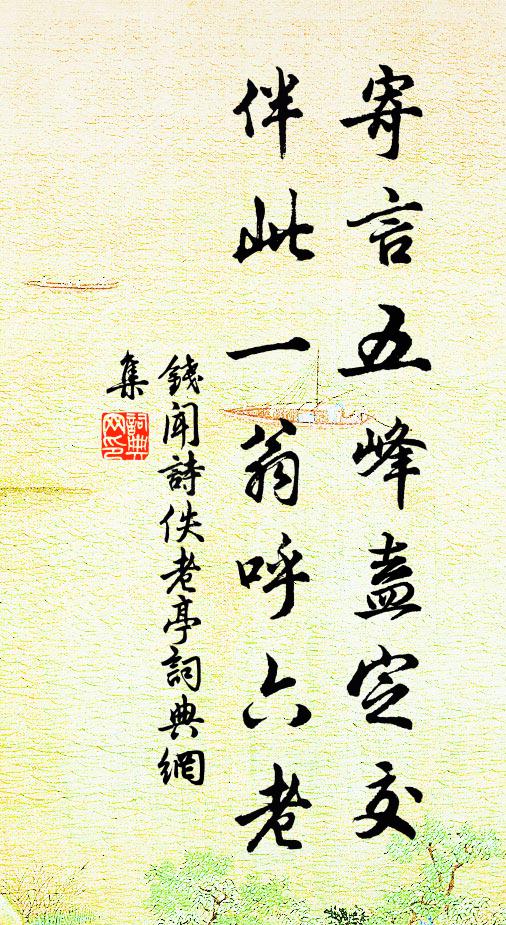 寄言五峰盍定交
伴此一翁呼六老
錢聞詩佚老亭詞典網
集
詞典網印